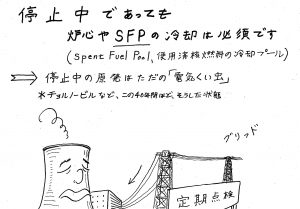 停止中であっても
炉心やSFPの冷却は必須です
(Spent Fuel Pool, 使用済核燃料の冷却プール)
⇒ 停止中の原発はただの「電気くい虫」
*チョルノービルなど、この40年間ほど、そうした状態
グリッド
定期点検